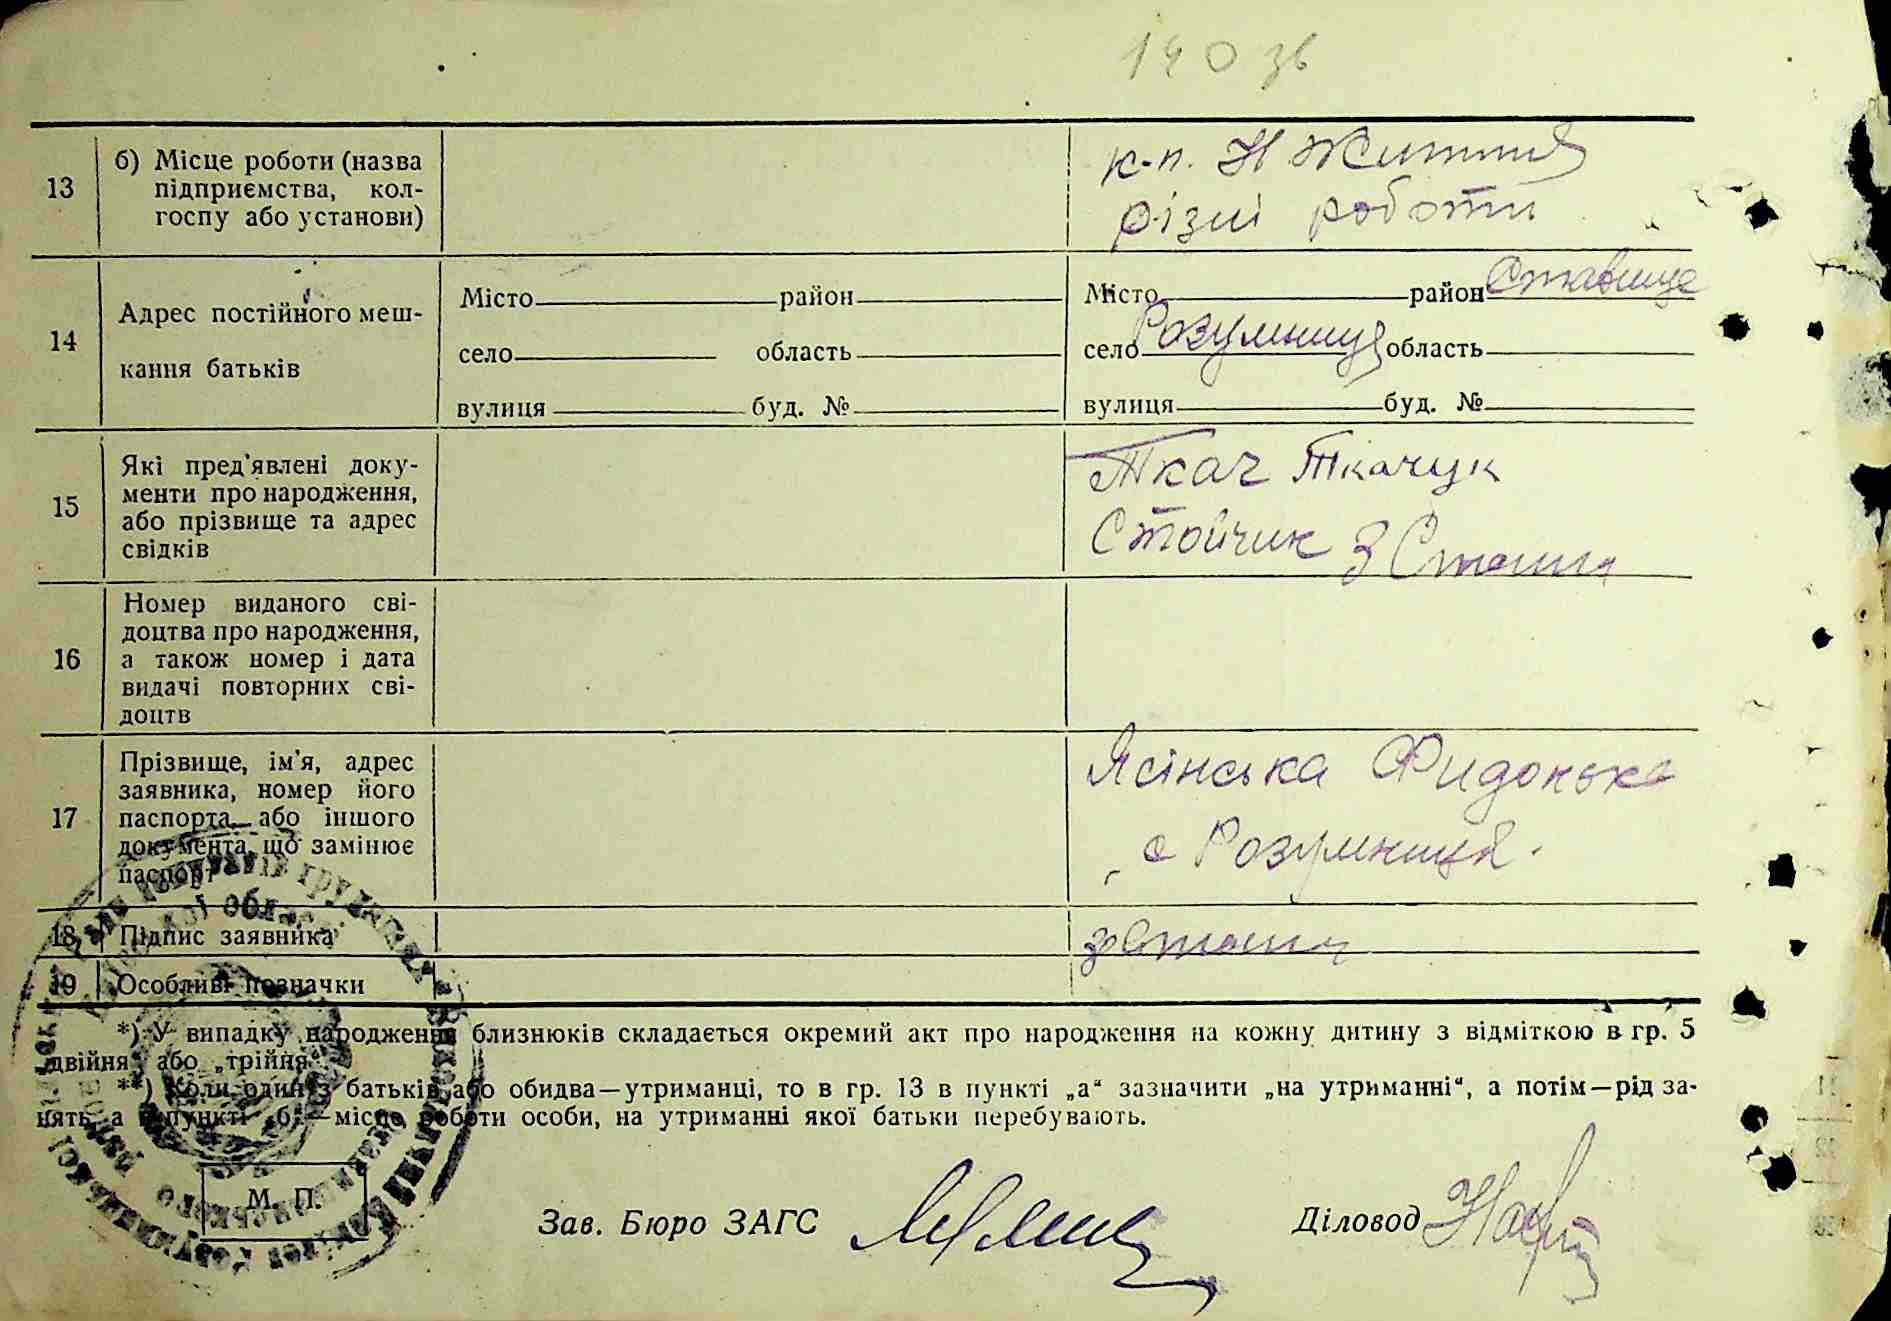 140 зв
13
б) Місце роботи (назва
підприємства, кол-
госпу або установи)
к-п. Н Життя
різні роботи
14
Адрес постійного меш-
кання батьків
Місто район
село область
вулиця буд. №
Місто район Ставище
село Розумниця область
вулиця буд. №
15
Які пред'явлені доку-
менти про народження,
або прізвище та адрес
свідків
Ткач Ткачук
Стойчик
16
Номер виданого сві-
доцтва про народження,
а також номер і дата
видачі повторних сві-
доцтв
17
Прізвище, ім'я, адрес
заявника, номер його
паспорта або іншого
документа, що замінює
паспорт
Ясінська
с Розумниця.
18
Підпис заявника
19
Особливі позначки
*) У випадку народження близнюків складається окремий акт про народження на кожну дитину з відміткою в гр. 5
„двійня“ або „трійня“
**) Коли один з батьків або обидва—утриманці, то в гр. 13 в пункті „а“ зазначити „на утриманні“, а потім—рід за-
нять, а в пункті „б“—місце роботи особи, на утриманні якої батьки перебувають.
М. П.
Зав. Бюро ЗАГС
Діловод